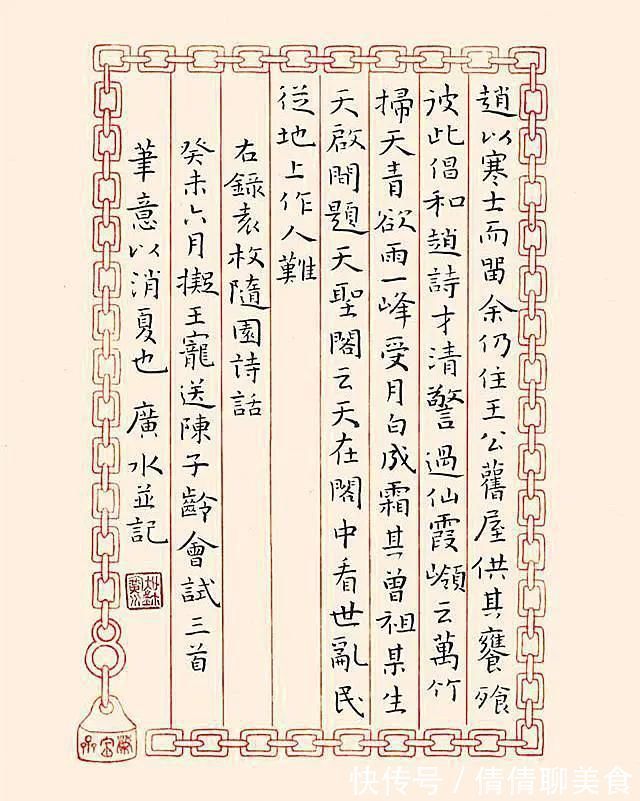 趙以寒士而留余仍住王公舊屋供其饔飱
彼此倡和趙詩才清警過仙霞嶺云萬竹
掃天青欲雨一峰受月白成霜其曾祖某生
天啟問題天聖閣云天在閣中看世亂民
從地上作人難
右錄袁枚隨園詩話
癸未六月擬王寵送陳子齡會試三首
筆意以消夏也 廣水並記
快传号/倩倩聊美食